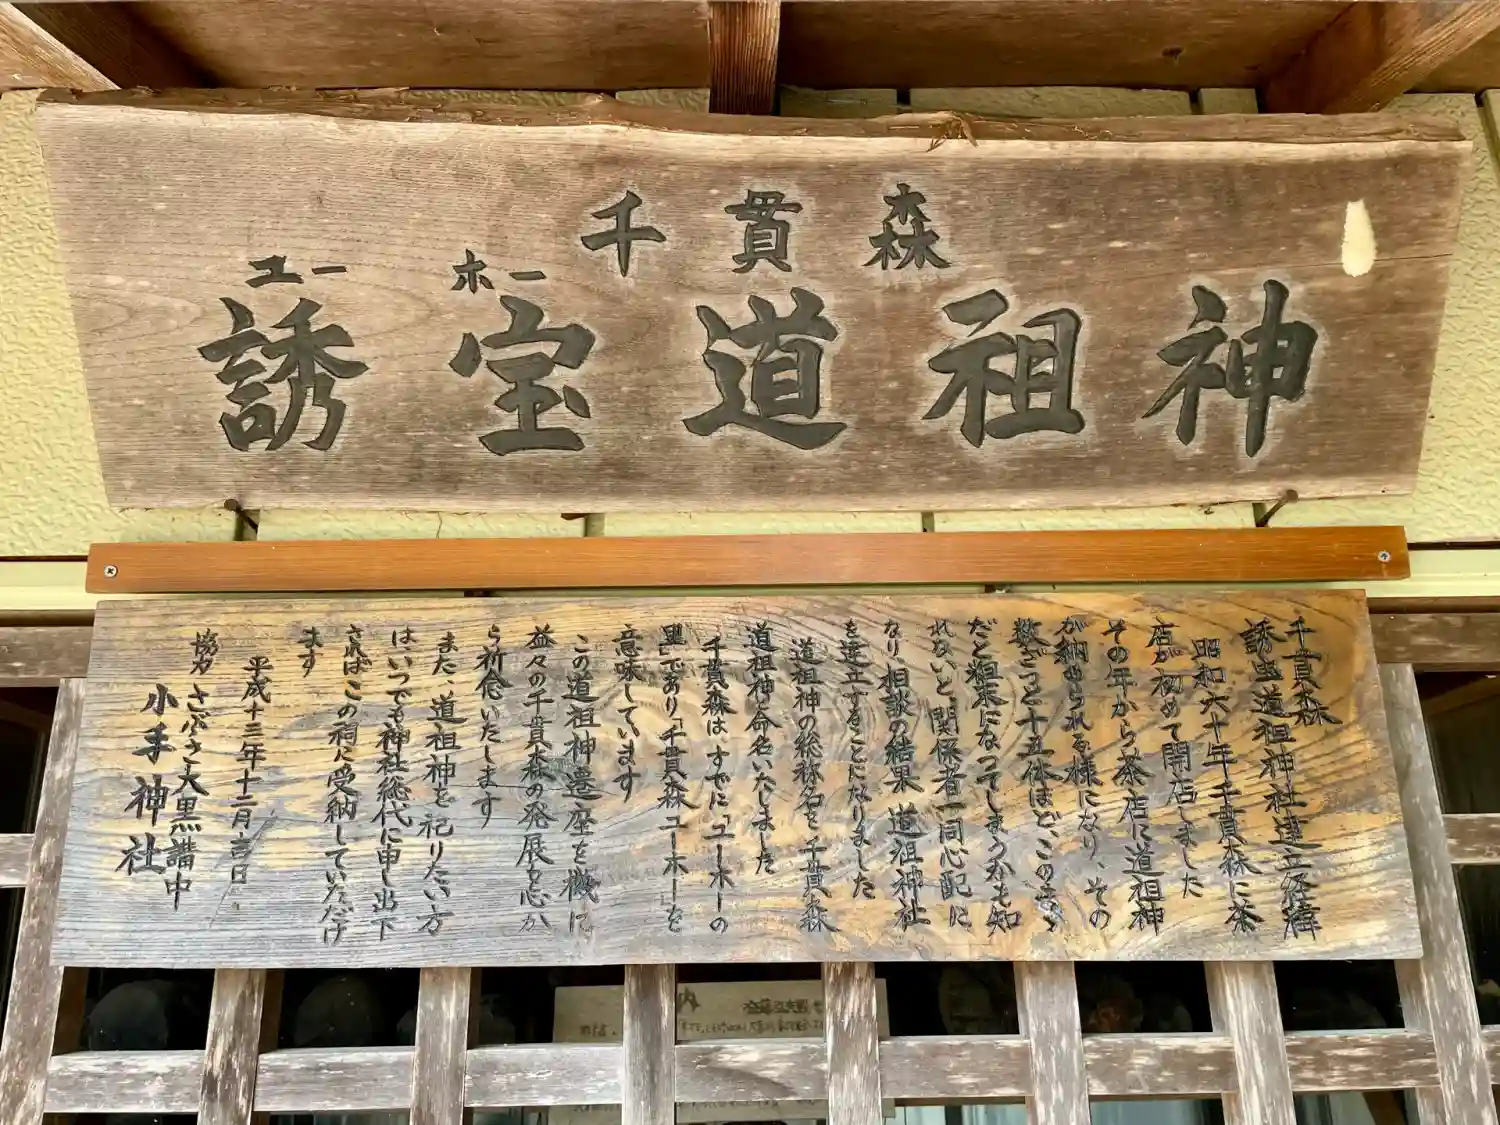 千貫森
ユー ホー
誘宝道祖神
千貫森
誘宝道祖神社建立経緯
昭和六十年千貫森に茶
店が初めて開店しました
その年から茶店に道祖神
が納められる様になり、その
数ざっと十五体ほど、このまゝ
だと粗末になってしまうかも知
れないと、関係者一同心配に
なり、相談の結果 道祖神社
を建立することになりました
道祖神の総称名を千貫森
道祖神と命名いたしました
千貫森はすでに「ユーホーの
里」であり「千貫森ユーホー」を
意味しています
この道祖神遷座を機に
益々の千貫森の発展を心か
ら祈念いたします
また、道祖神を祀りたい方
は、いつでも神社総代に申し出下
さればこの祠に受納していただけ
ます
平成十三年十二月吉日
協力 さぶさ大黒講中
小手神社